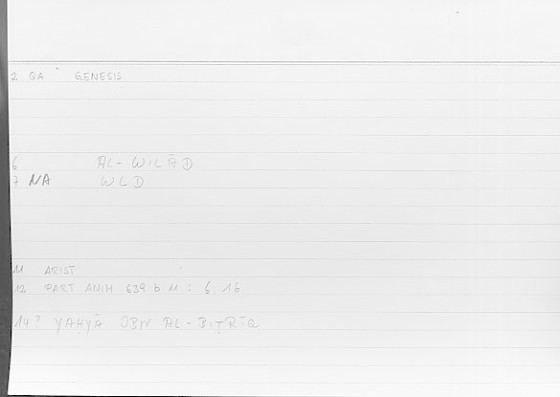 2 GA GENESIS
6 AL-WILĀD
7 NA WLD
11 ARIST
12 PART ANIM 639 b 11 : 6, 16
14? YAḤYĀ IBN AL-BIṬRĪQ